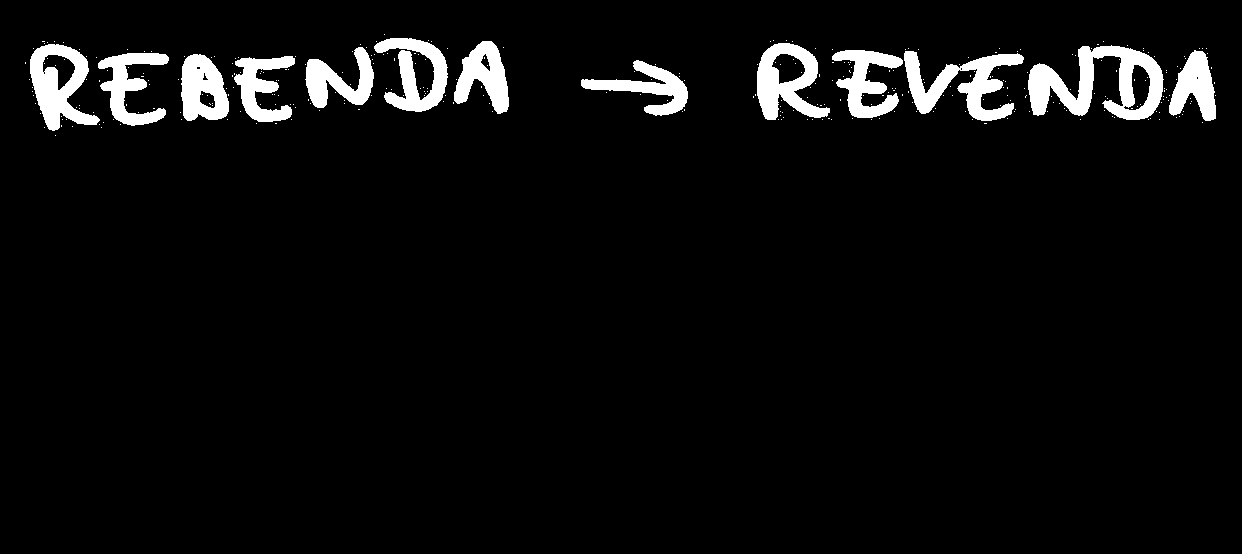 REBENDA → REVENDA